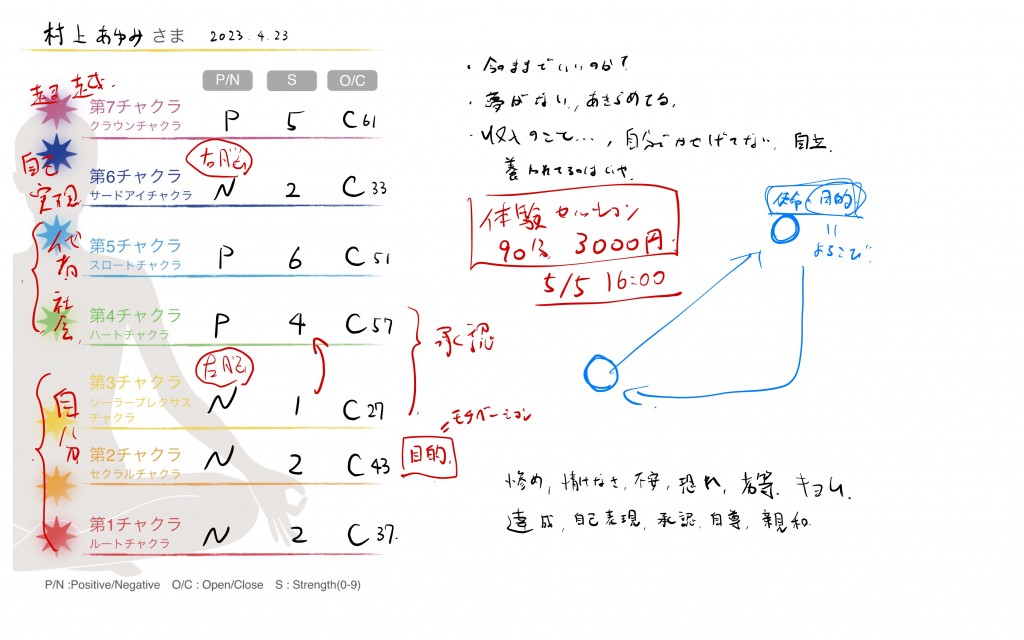 村上あゆみ さま 2023.4.23
P/N S O/C
超越
第7チャクラ
クラウンチャクラ
P 5 C61
右脳
自己
実現
第6チャクラ
サードアイチャクラ
N 2 C33
他者
社会
第5チャクラ
スロートチャクラ
P 6 C51
第4チャクラ
ハートチャクラ
P 4 C57
承認
右脳
第3チャクラ
ソーラープレクサス
チャクラ
N 1 C27
自分
モチベーション
目的
第2チャクラ
セクラルチャクラ
N 2 C43
第1チャクラ
ルートチャクラ
N 2 C37.
P/N :Positive/Negative O/C : Open/Close S : Strength(0-9)
・今のままでいいのか?
・夢がない, あきらめてる,
・収入のこと…, 自分でかせげてない, 自立
養われてるのはいや.
体験セッション
90分, 3000円.
5/5 16:00
使命・目的
=
よろこび
惨め, 情けなさ, 不安, 恐れ, 劣等, キョム,
達成, 自己表現, 承認, 自尊, 親和